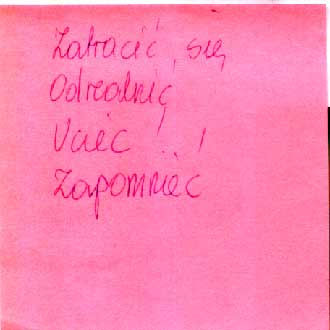 Zatracić się,
Odrealnić
Uciec!..!
Zapomnieć